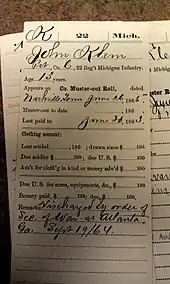 K 22 Mich.
John Klem
Co. C, 22 Reg't Michigan Infantry.
Age 13 years.
Appears on Co. Muster-out Roll, dated
Nashville Tenn June 26, 1865
Muster-out to date , 186
Last paid to June 30, 1863
Clothing account:
Last settled , 186 ; drawn since $ 100
Due soldier $ 100; due U. S. $ 100
Am't for cloth'g in kind or money adv'd $ 100
Due U. S. for arms, equipments, &c., $ 100
Bounty paid $ 100; due $ 100
Remarks: Discharged by order of
Sec. of War at Atlanta
Ga. Sept 19/64.